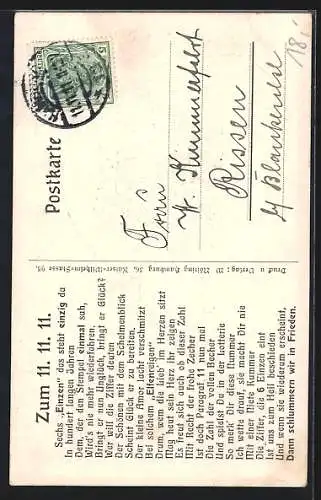 Zum 11. 11. 11.
Sechs „Einzen" das steht einzig da
In hundert langen Jahren
Dem, der den Stempel einmal sah,
Wird's nie mehr wiederfahren.
Bringt er nun Unglück, bringt er Glück?
Wer will die Ziffer deuten
Der Schönen mit dem Schelmenblick
Scheint Glück er zu bereiten.
Der kleine Amor lacht verschmitzt
Bei solchem „Elfenreigen"
Drum, wem die Lieb' im Herzen sitzt
Mag heut sein Herz ihr zeigen
Es freut sich auch ob dieser Zahl
Mit Recht der frohe Zecher
Ist doch Paragraf 11 nun mal
Die Zahl der vollen Becher
Und spielst Du in der Lotterie
So merk' Dir diese Nummer
Ich wette drauf, die macht Dir nie
Mit einer Niete Kummer
Die Ziffer, die 6 Einzen eint
Ist uns zum Heil beschieden
Und wenn sie wiederum erscheint,
Dann schlummern wir in Frieden.
Druck u. Verlag: W. Nölting, Hamburg 36, Kaiser-Wilhelm-Strasse 95.
Postkarte
5
Frau
Kummerfeldt
Rissen
b/ Blankenese
18,-